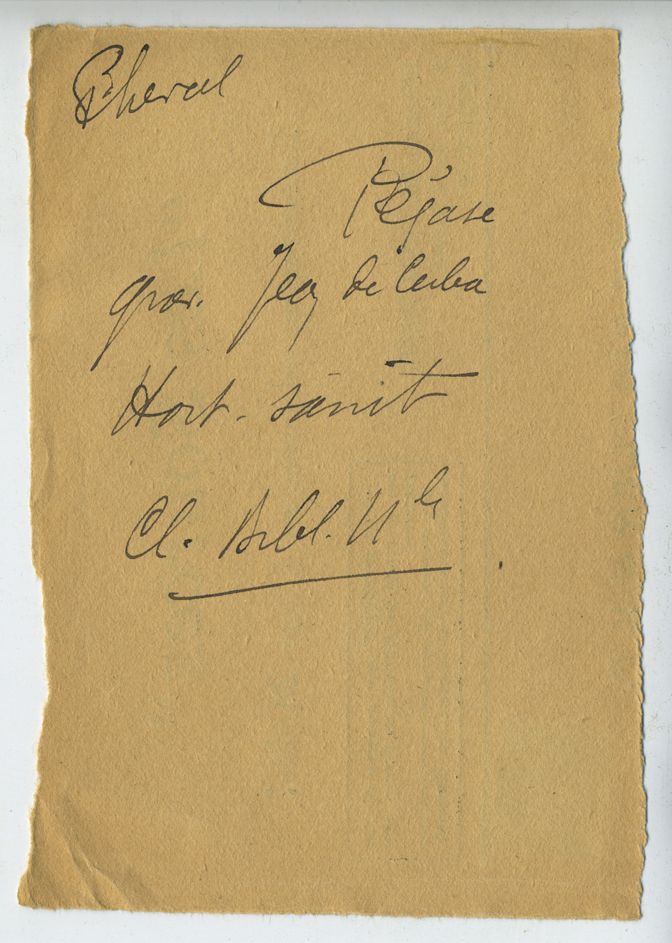 Cheval
Pégase
grav. Jean de Cuba
Hort. sanit
Cl. Bibl. Nle